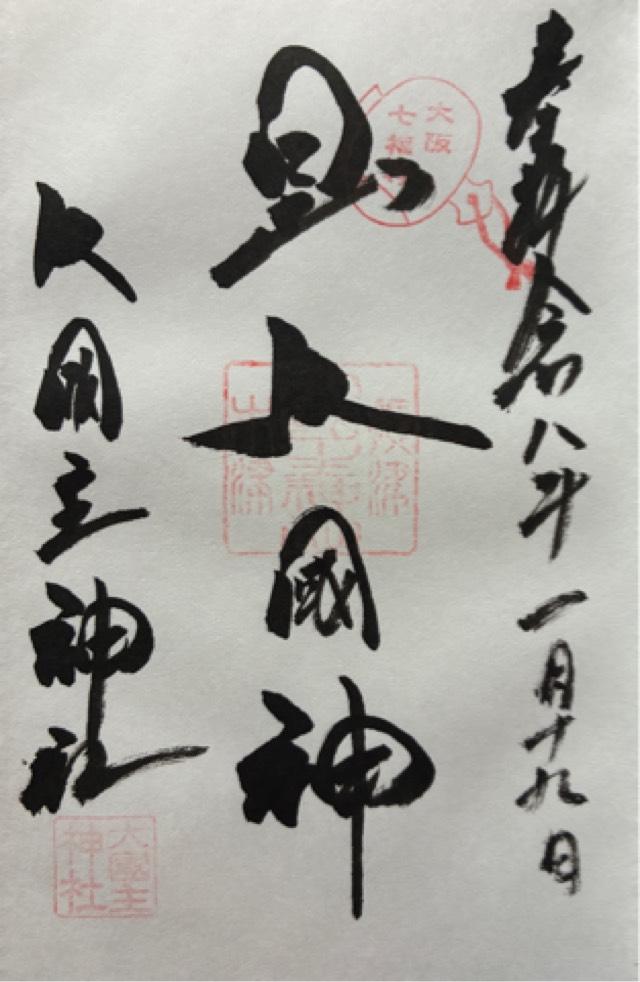 奉拝 令和八年一月十九日
大阪
七福神
大國神
大国主神社
大國主
神社